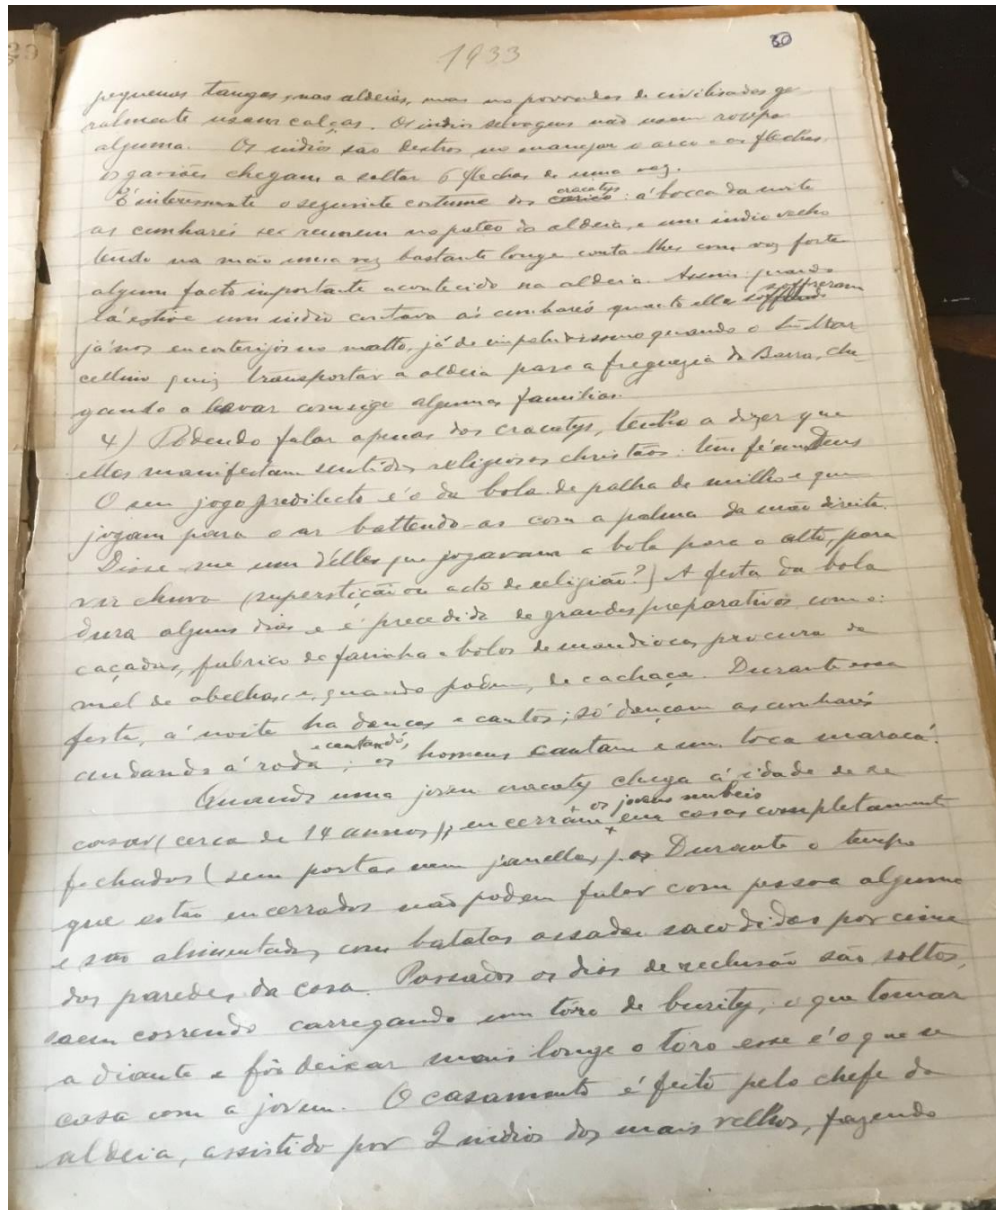 1933
30
pequenas tangas, nas aldeias, mas no povoados de civilisados ge
ralmente usam calças. Os indios selvagens não usam roupa
alguma. Os indios são dextros no manejar o arco e as flechas.
Os gaviões chegam a soltar 6 flechas de uma vez.
É interessante o seguinte costume dos cracatys: á bocca da noite
as cunharés se reunem no pateo da aldeia, e um indio velho
tendo na mão uma vez bastante longe conta-lhes com voz forte
algum facto importante acontecido na aldeia. Assim quando
lá estive um indio contava ás cunharés quanto elle soffreram
já nos no matto, já de quando o Mar
cellino quiz transportar a aldeia para a freguezia da Barra, che
gando a levar comsigo algumas familias.
4) Podendo falar apenas dos cracatys, tenho a dizer que
elles manifestam sentidos religiosos christãos: têm fé em Deus
O seu jogo predilecto é o da bola de palha de milho e que
jogam para o ar battendo-as com a palma da mão direita.
Disse-me um d'elles que jogavam a bola para o alto, para
vir chuva (superstição ou acto de religião?) A festa da bola
dura alguns dias e é precedida de grandes preparativos como:
caçadas, fabrico de farinha e bolos de mandioca, procura de
mel de abelhas, e, quando podem, de cachaça. Durante essa
festa, á noite ha danças e cantos; só dançam as cunharés
andando á roda e cantando; os homens cantam e um toca maracá.
Quando uma joven cracaty chega á idade de se
casar (cerca de 14 annos), encerram os jovens nubeis em casas completament
fechados (sem portas nem janellas). Durante o tempo
que estão encerrados não podem falar com pessoa alguma
e são alimentados com batatas assadas sacodidas por cima
das paredes da casa. Passados os dias de reclusão são soltos,
saem correndo carregando um tóro de burity; o que tomar
a diante e fôr deixar mais longe o toro esse é o que se
casa com a joven. O casamento é feito pelo chefe da
aldeia, assistido por 2 indios dos mais velhos, fazendo